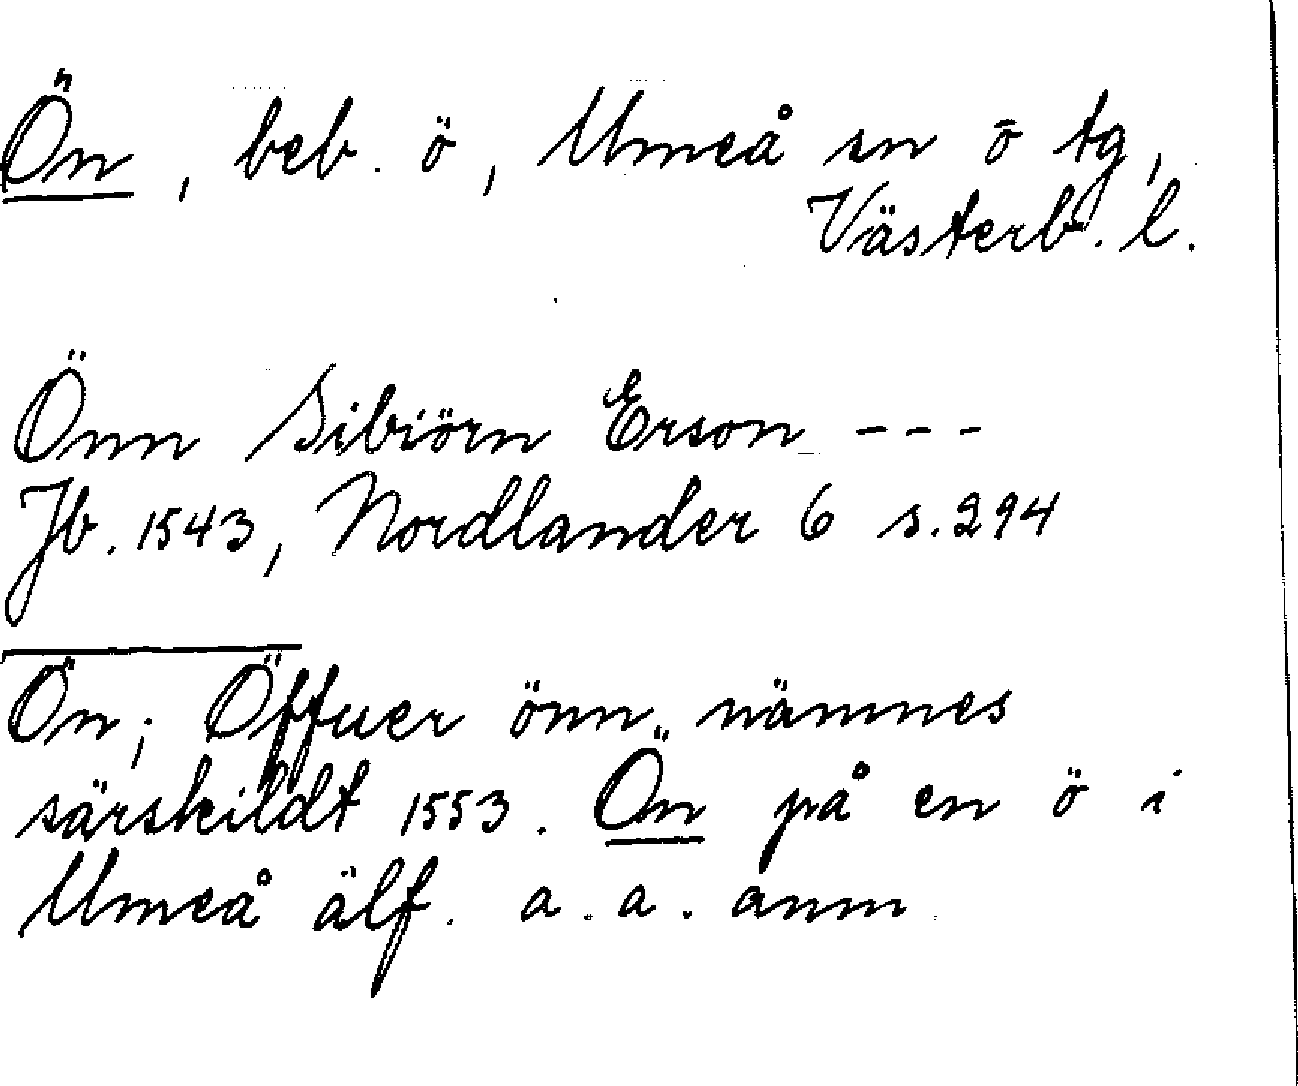 Ön, beb. ö, Umeå sn o tg,
Västerb. l.
Önn Sibiörn Erson ---
Jb. 1543, Nordlander 6 s. 294
Ön; Öffuer önn nämnes
särskildt 1553. Ön på en ö i
Umeå älf. a. a. anm.